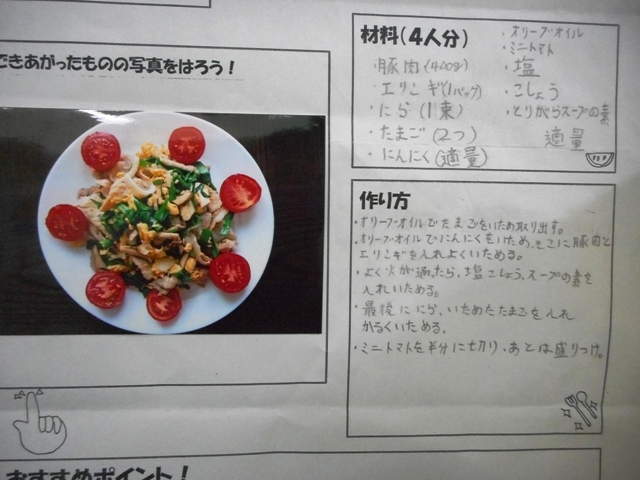 できあがったものの写真をはろう!
材料(4人分)
豚肉(400g)
・エリンギ(1パック)
・にら(1束)
・たまご(2つ)
・にんにく(適量)
・オリーブオイル
・ミニトマト
・塩
・こしょう
・とりがらスープの素
適量
作り方
・オリーブオイルでたまごをいため取り出す。
・オリーブオイルでにんにくをいため、そこに豚肉と
エリンギを入れよくいためる。
・よく火が通ったら、塩こしょう、スープの素を
入れいためる。
・最後ににら、いためたたまごを入れ
かるくいためる。
・ミニトマトを半分に切り、あとは盛りつけ。
おすすめポイント!